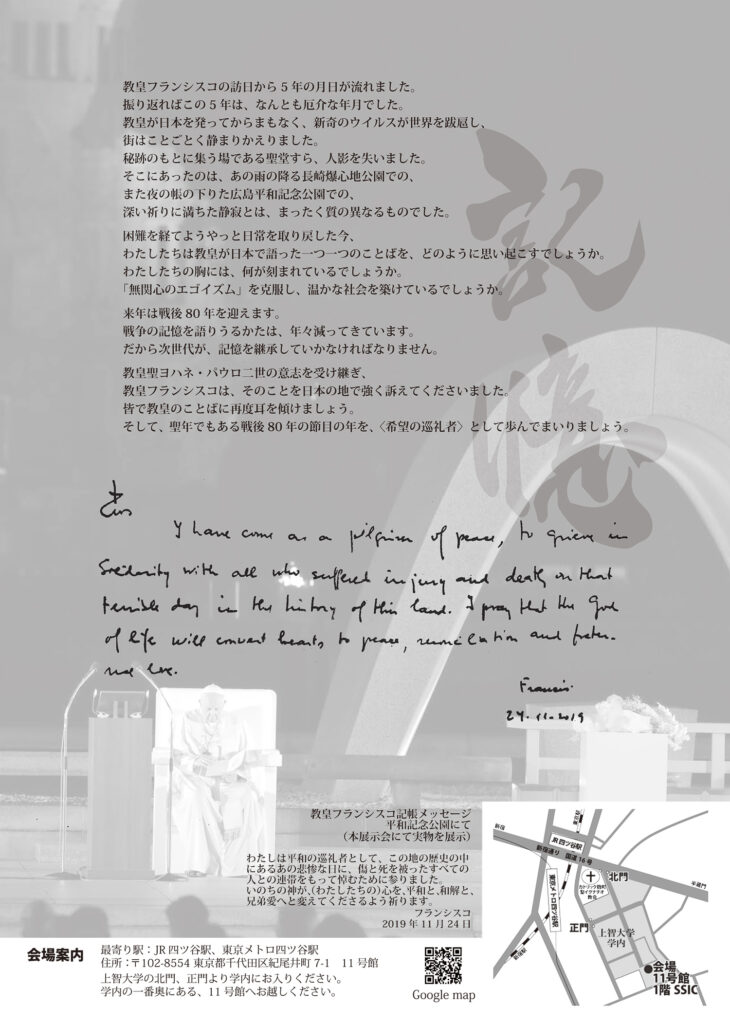 教皇フランシスコの訪日から5年の月日が流れました。
振り返ればこの5年は、なんとも厄介な年月でした。
教皇が日本を発ってからまもなく、新奇のウイルスが世界を跋扈し、
街はことごとく静まりかえりました。
秘跡のもとに集う場である聖堂すら、人影を失いました。
そこにあったのは、あの雨の降る長崎爆心地公園での、
また夜の帳の下りた広島平和記念公園での、
深い祈りに満ちた静寂とは、まったく質の異なるものでした。
困難を経てようやっと日常を取り戻した今、
わたしたちは教皇が日本で語った一つ一つのことばを、どのように思い起こすでしょうか。
わたしたちの胸には、何が刻まれているでしょうか。
「無関心のエゴイズム」を克服し、温かな社会を築けているでしょうか。
来年は戦後80年を迎えます。
戦争の記憶を語りうるかたは、年々減ってきています。
だから次世代が、記憶を継承していかなければなりません。
教皇聖ヨハネ・パウロ二世の意志を受け継ぎ、
教皇フランシスコは、そのことを日本の地で強く訴えてくださいました。
皆で教皇のことばに再度耳を傾けましょう。
そして、聖年でもある戦後80年の節目の年を、〈希望の巡礼者〉として歩んでまいりましょう。
記憶
I have come as a pilgrim of peace, to grieve in
solidarity with all who suffered injury and death on that
terrible day in the history of this land. I pray that the God
of life will convert hearts to peace, reconciliation and frater-
nal love.
Francis
24.11.2019
教皇フランシスコ記帳メッセージ
平和記念公園にて
（本展示会にて実物を展示）
わたしは平和の巡礼者として、この地の歴史の中
にあるあの悲惨な日に、傷と死を被ったすべての
人との連帯をもって悼むために参りました。
いのちの神が、（わたしたちの）心を、平和と、和解と、
兄弟愛へと変えてくださるよう祈ります。
フランシスコ
2019年11月24日
新宿
JR四ツ谷駅
新宿通り 国道16号
半蔵門
北門
カトリック麹町
聖イグナチオ
教会
東京メトロ四ツ谷駅
正門
上智大学
学内
会場
11号館
1階 SSIC
会場案内
最寄り駅：JR四ツ谷駅、東京メトロ四ツ谷駅
住所：〒102-8554 東京都千代田区紀尾井町7-1 11号館
上智大学の北門、正門より学内にお入りください。
学内の一番奥にある、11号館へお越しください。
Google map